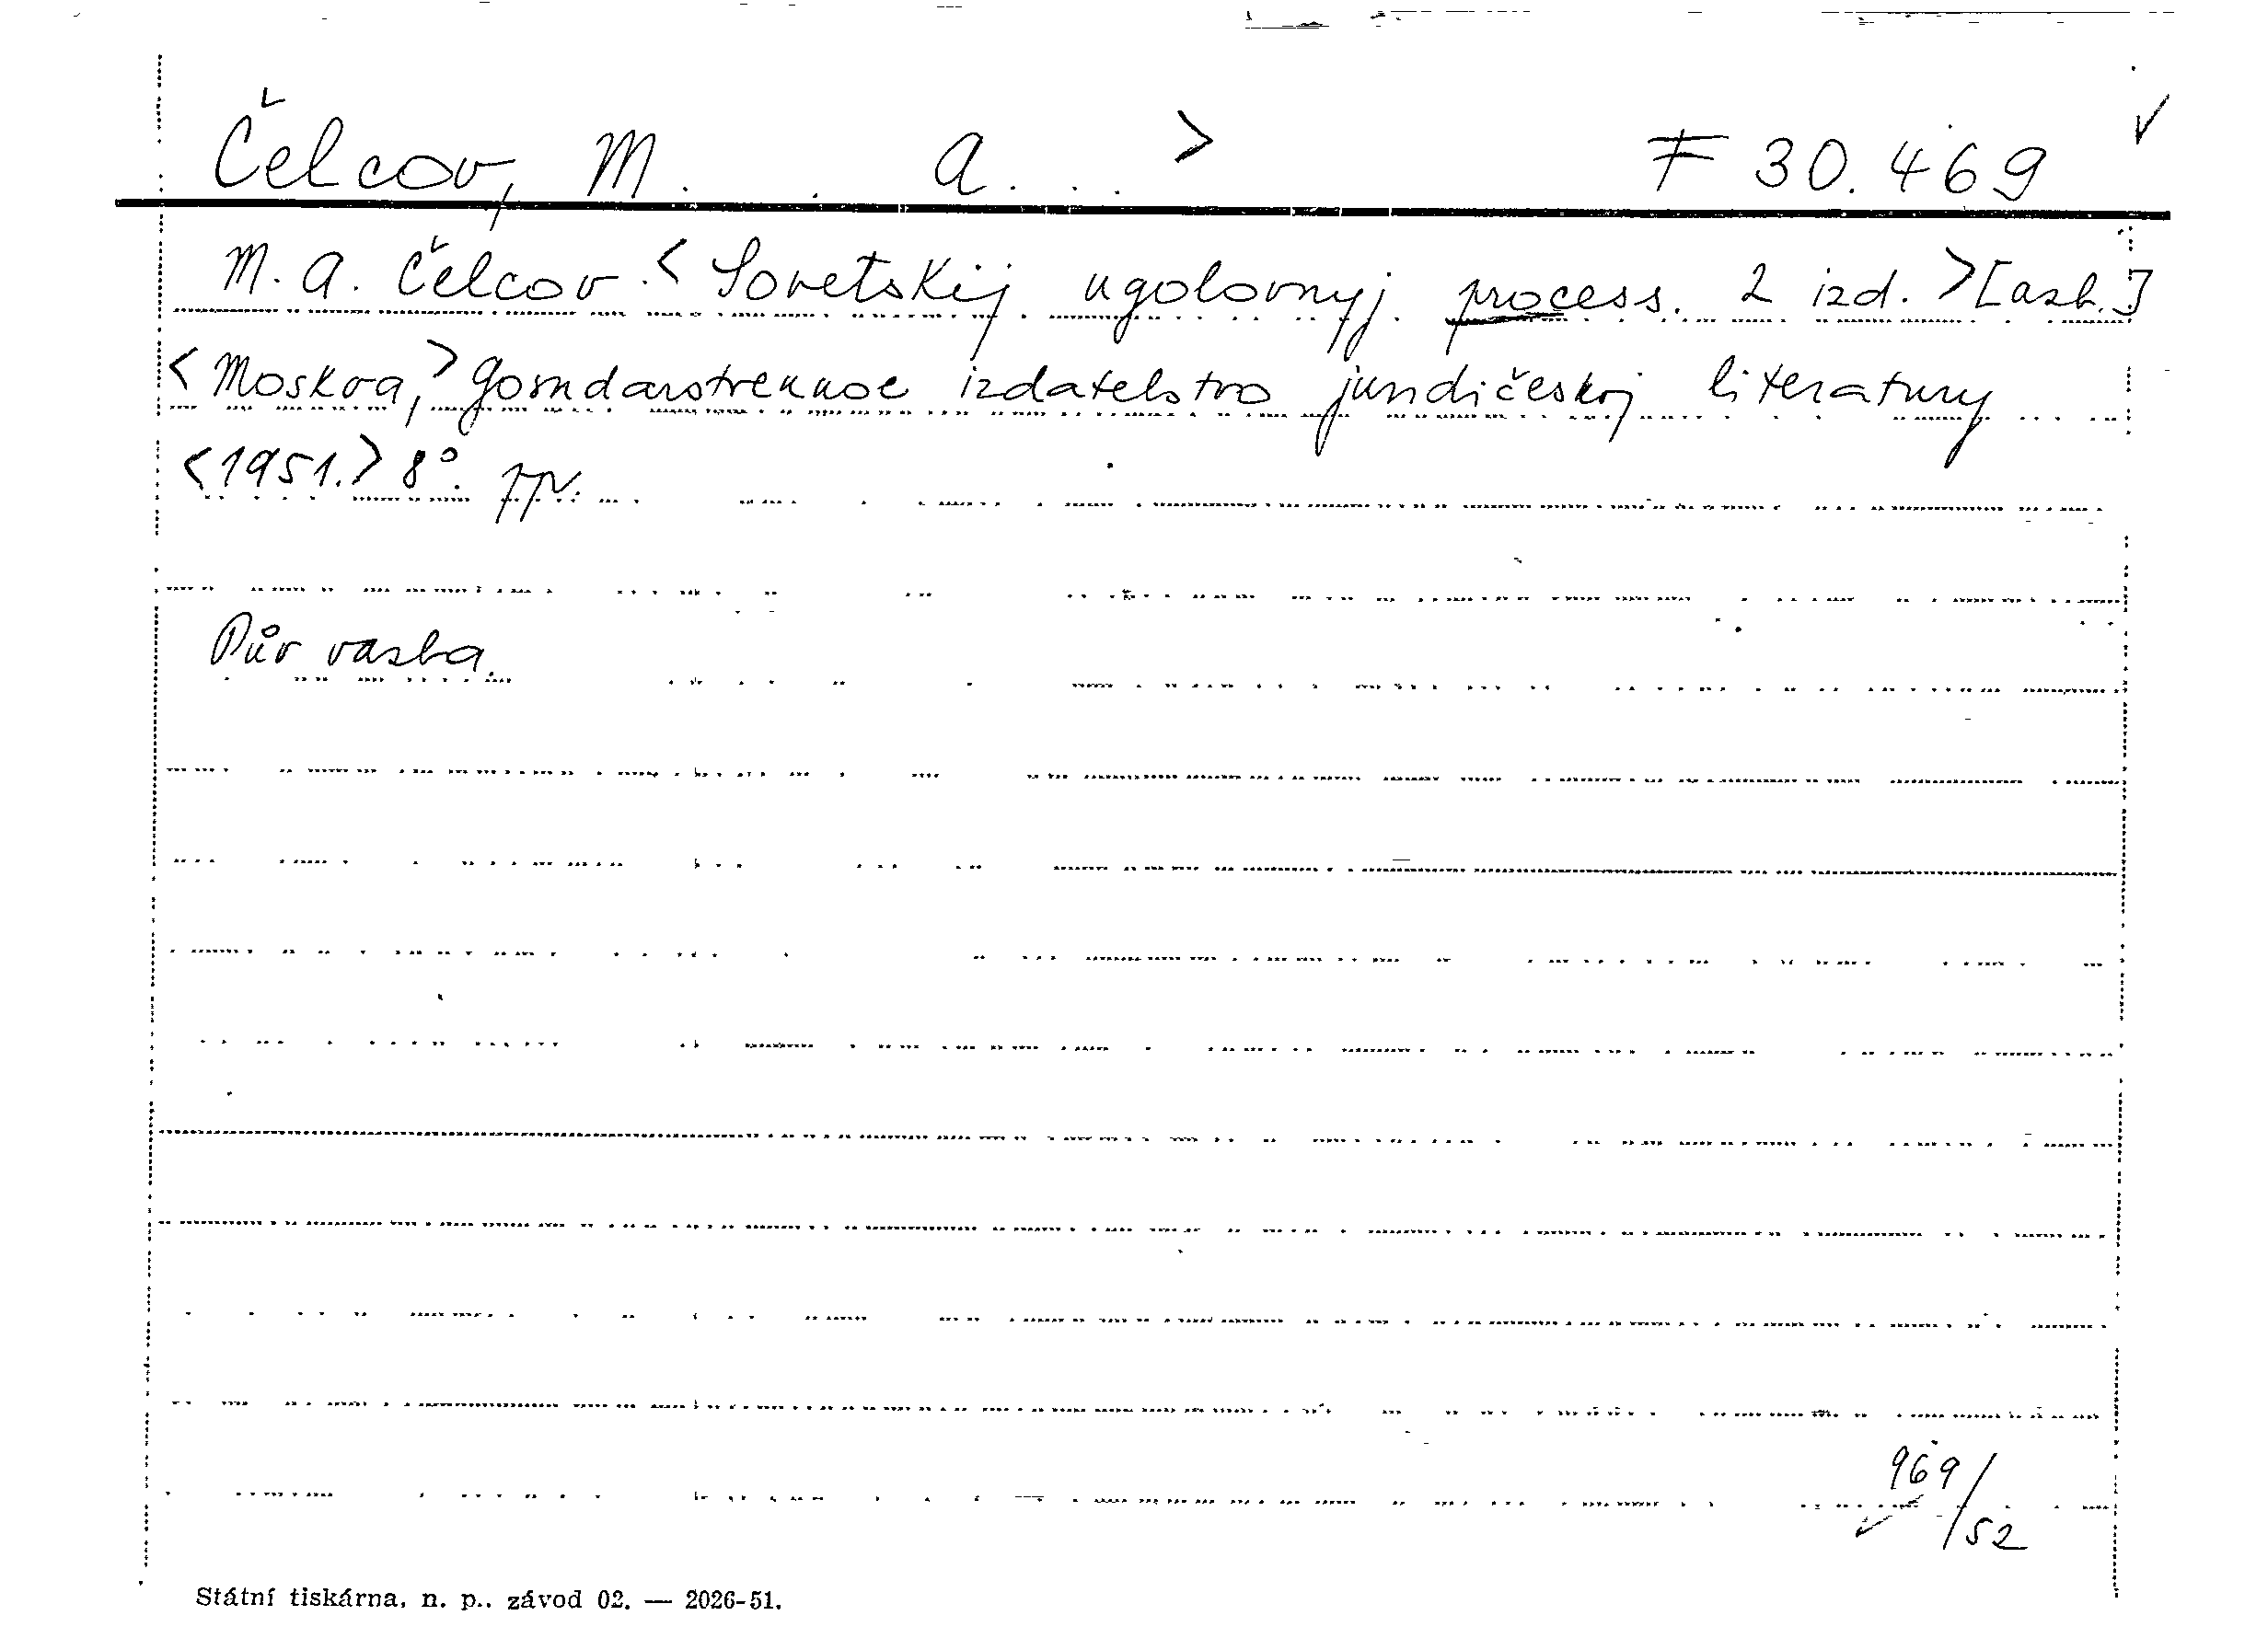 Čelcov, M. . A. . . > F 30.469
M. A. Čelcov. < Sovetskij ugolovnyj process. 2 izd. > [azb.]
< Moskva, > Gosudarstvennoe izdatelstvo juridičeskoj literatury
< 1951. > 8°.
Pův vazba.
969/52
Státní tiskárna, n. p., závod 02. — 2026-51.